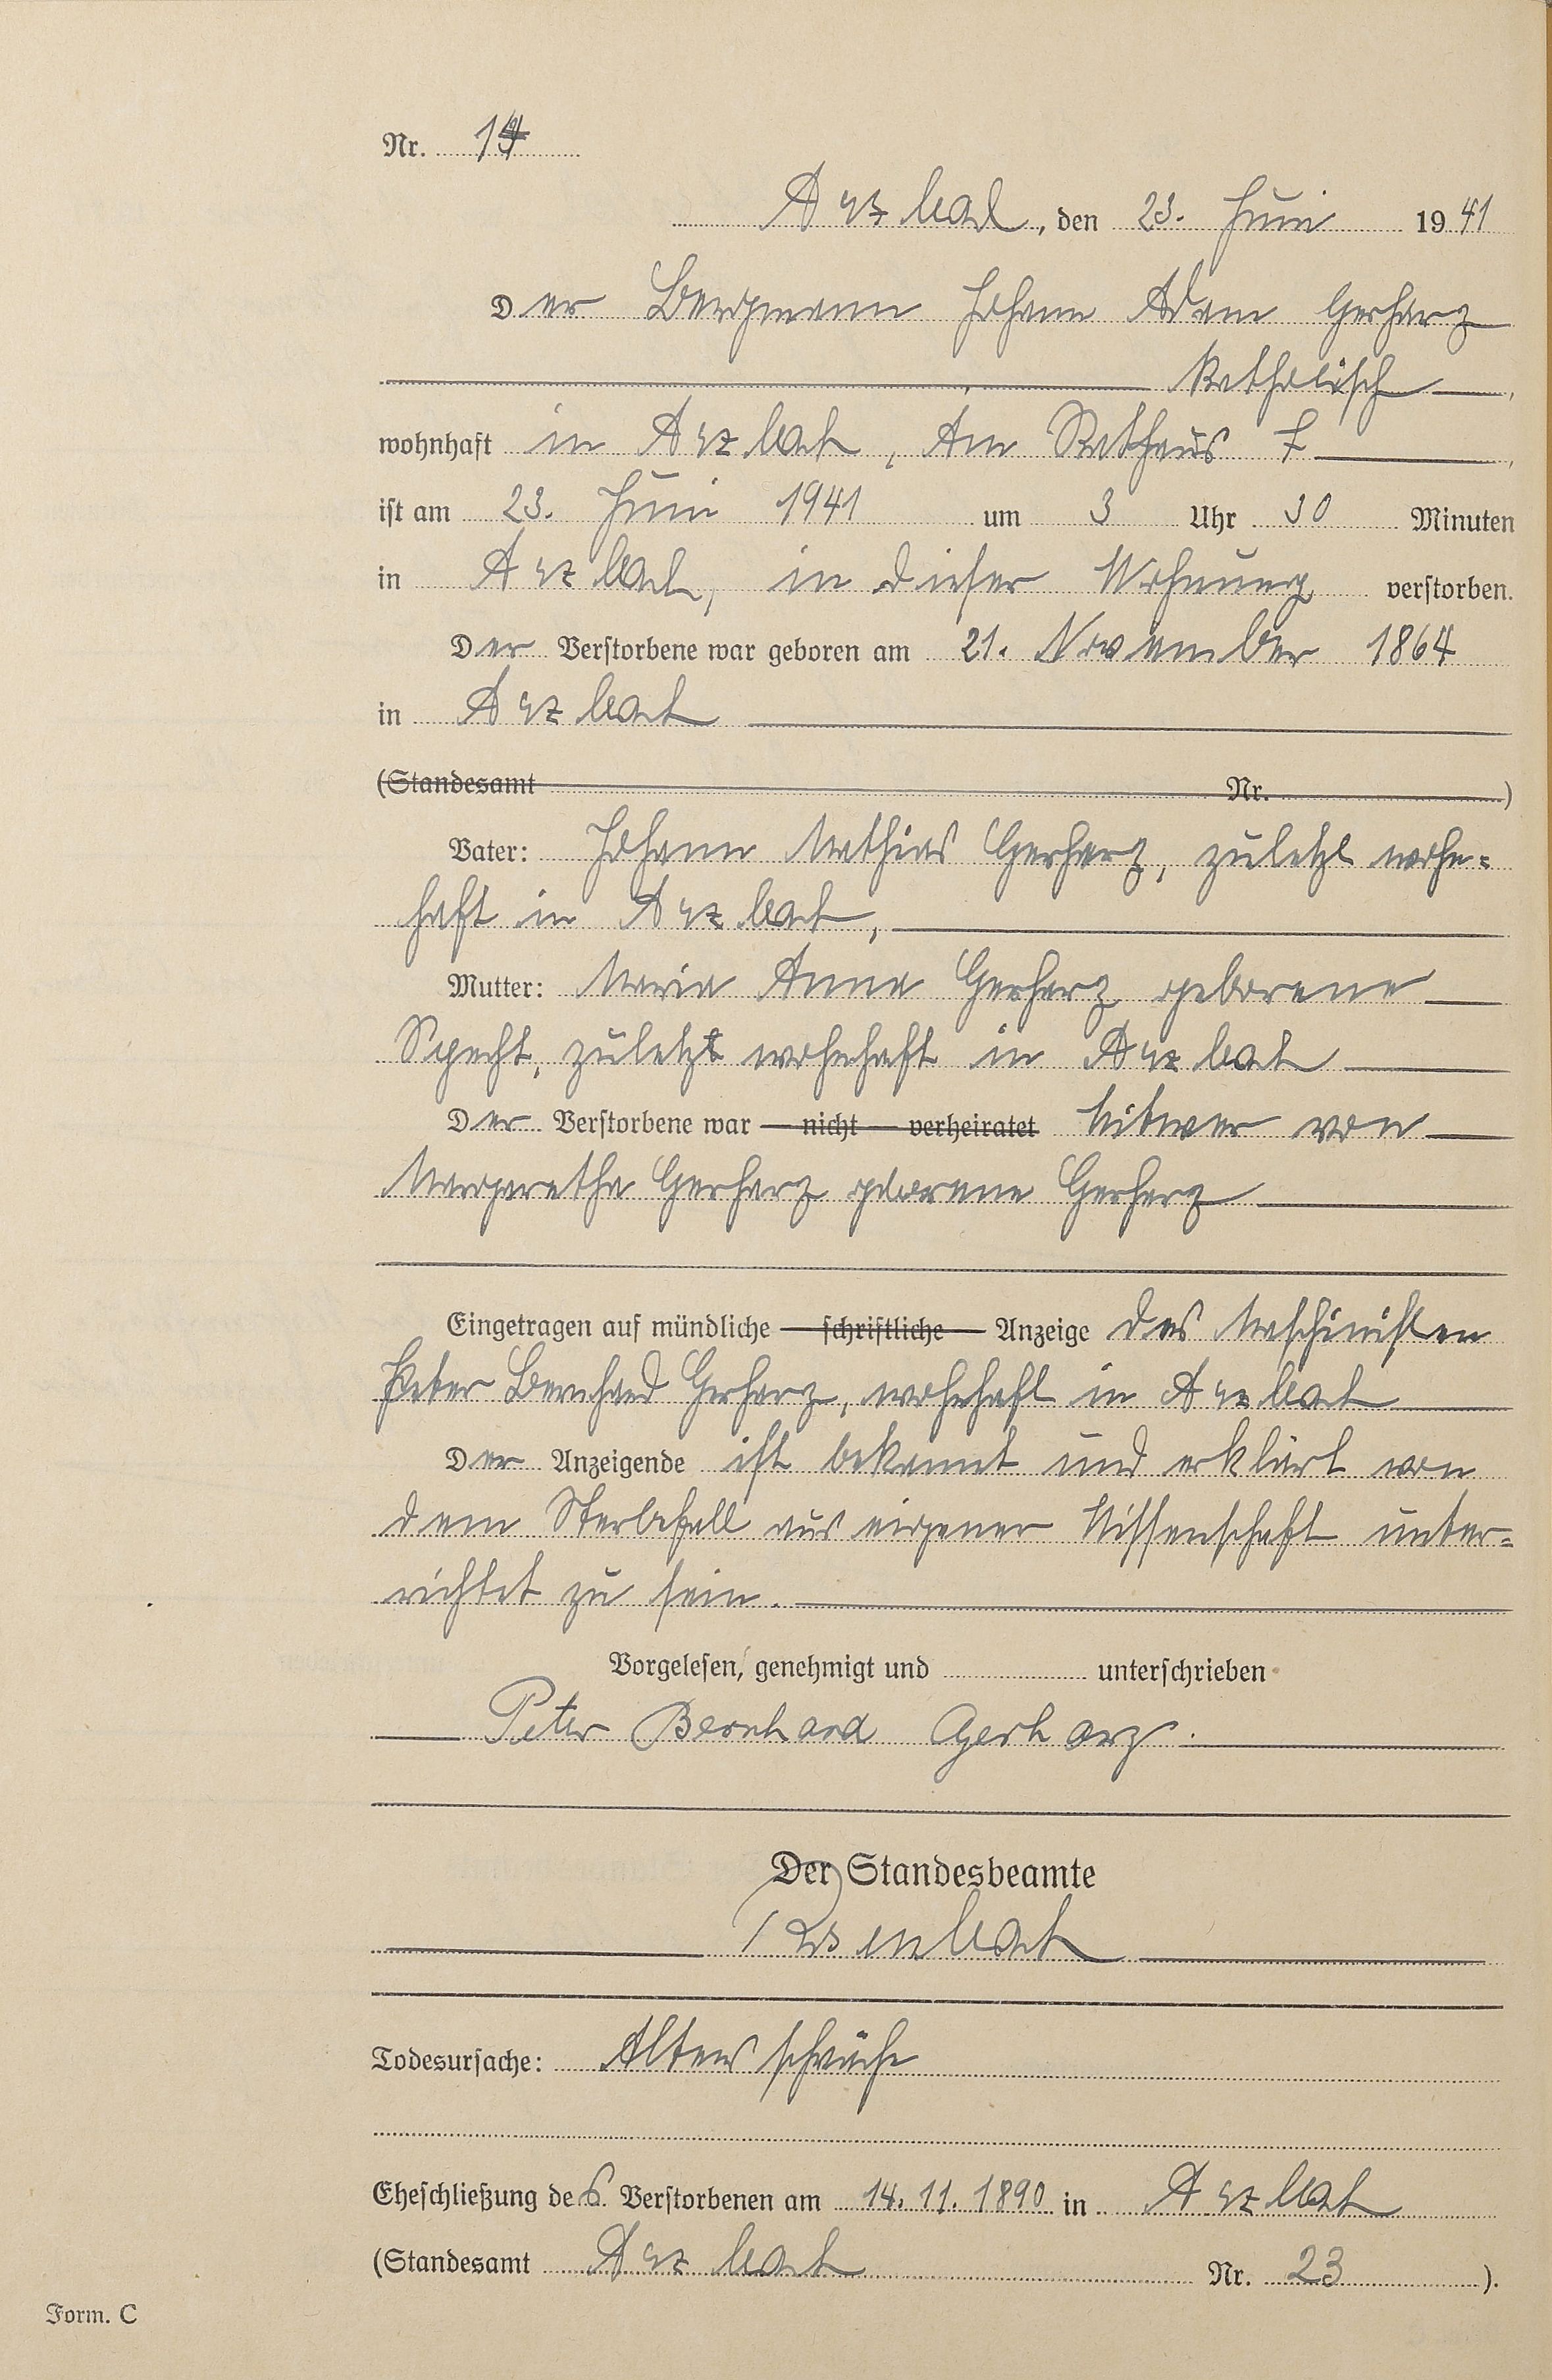 Nr. 14
Arzbach, den 23. Juni 1941
Der Bergmann Johann Adam Gerharz
katholisch,
wohnhaft in Arzbach, Am Rathaus 7,
ist am 23. Juni 1941 um 3 Uhr 30 Minuten
in Arzbach, in dieser Wohnung verstorben.
Der Verstorbene war geboren am 21. November 1864
in Arzbach
(Standesamt Nr. )
Vater: Johann Mathias Gerharz, zuletzt wohn-
haft in Arzbach,
Mutter: Maria Anna Gerharz geborene
Specht, zuletzt wohnhaft in Arzbach
Der Verstorbene war nicht verheiratet Witwer von
Margaretha Gerharz geborene Gerharz
Eingetragen auf mündliche schriftliche Anzeige des Maschinisten
Peter Bernhard Gerharz, wohnhaft in Arzbach
Der Anzeigende ist bekannt und erklärt von
dem Sterbefall aus eigener Wissenschaft unter-
richtet zu sein.
Vorgelesen, genehmigt und unterschrieben
Peter Bernhard Gerharz.
Der Standesbeamte
Todesursache: Altersschwäche
Eheschließung des Verstorbenen am 14. 11. 1890 in Arzbach
(Standesamt Arzbach Nr. 23 ).
Form. C